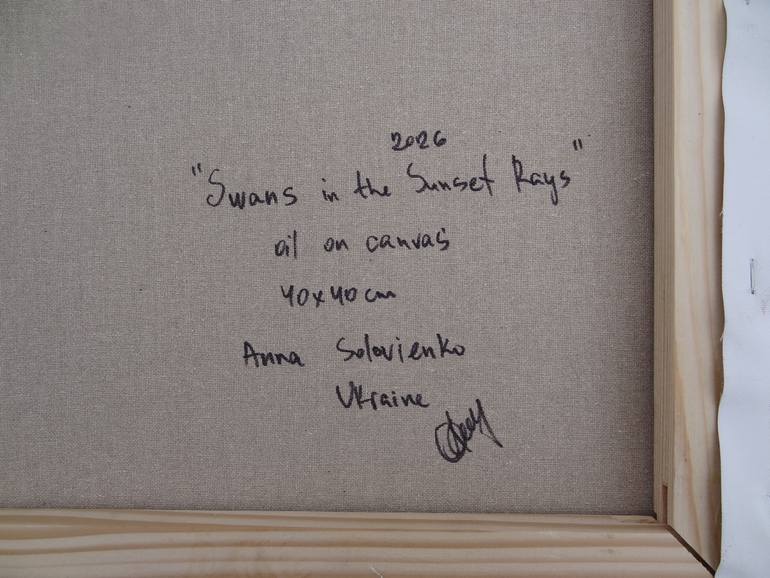 2026
"Swans in the Sunset Rays"
oil on canvas
40x40 cm
Anna Solovienko
Ukraine